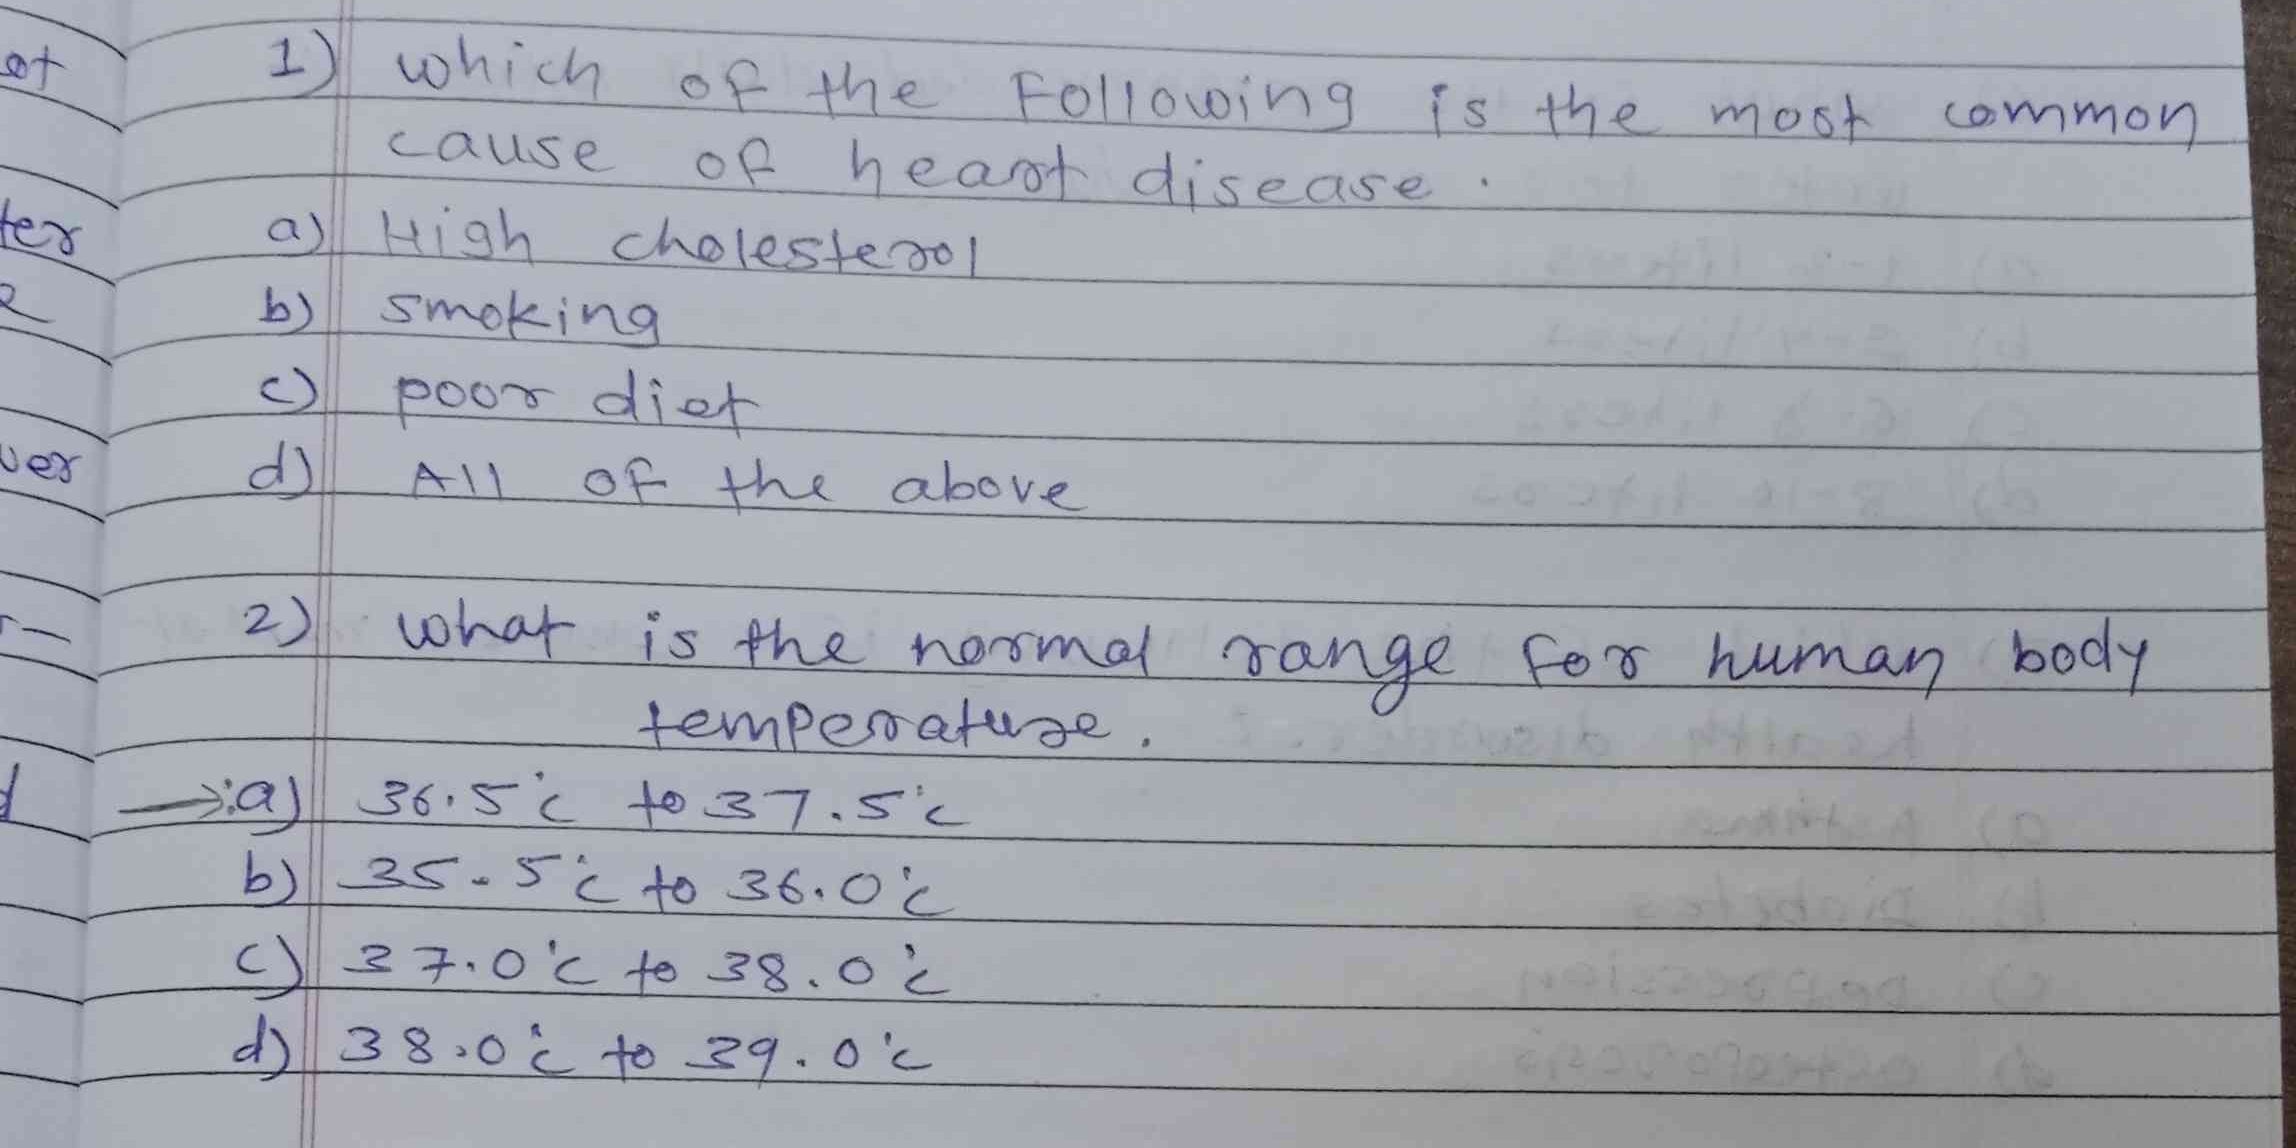 1) which of the Following is the most common
cause of heart disease.
a) High cholesterol
b) smoking
c) poor diet
d) All of the above
2) what is the normal range for human body
temperature.
→:a) 36.5°c to 37.5°c
b) 35.5°c to 36.0°c
c) 37.0°c to 38.0°c
d) 38.0°c to 39.0°c